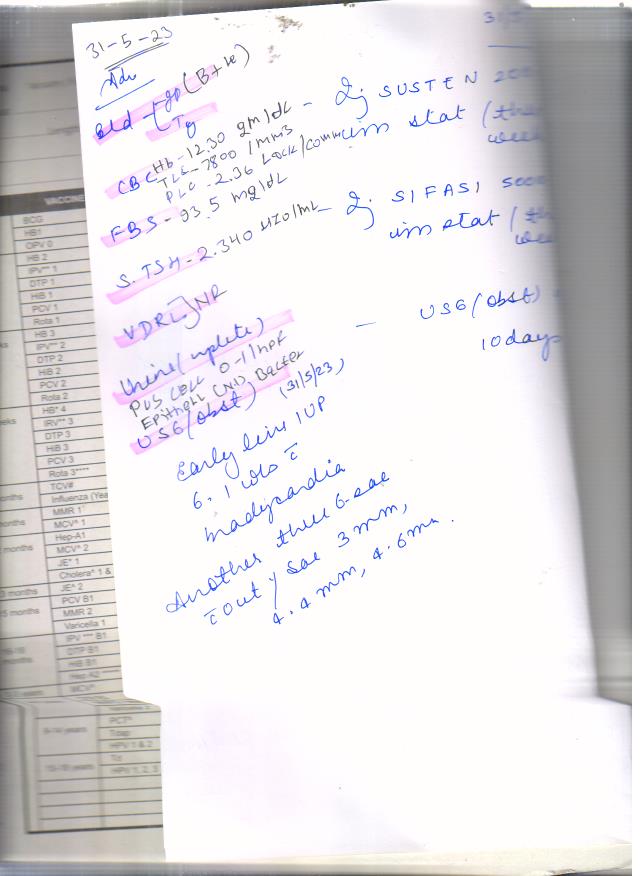 31-5-23
31/5
Adv
Bld gp (B+ve)
CBC Hb-12.30 gm/dL
TLC-7800 /mm3
PLC-2.36 Lack/comm
Inj SUSTEN 200
im stat /
week
FBS-93.5 mg/dL
S.TSH-2.340 uIU/mL
Inj SIFASI 5000
im stat /
VDRL] NR
Urine (
PUS CELL 0-1/HPF
Epithell (Nil) Bacter
USG (obst) (31/5/23)
- USG (obst)
10 days
Early live IUP
6.1 wks c̄
bradycardia
Another three G-sac
c̄out y sac 3mm,
4.4 mm, 4.6mm.
VACCINE
BCG
HB1
OPV 0
HB 2
IPV** 1
DTP 1
HiB 1
PCV 1
Rota 1
HB 3
IPV** 2
DTP 2
HiB 2
PCV 2
Rota 2
HB* 4
DTP 3
HiB 3
PCV 3
Rota 3****
TCV#
Influenza (Yea
MMR 1
MCV^ 1
Hep-A1
MCV^ 2
JE^ 1
Cholera^ 1 &
JE^ 2
PCV B1
MMR 2
Varicella 1
IPV *** B1
DTP B1
HiB B1
Hep A2
MCV^
PCT^
Tdap
HPV 1 & 2
Td
HPV 1, 2, 3